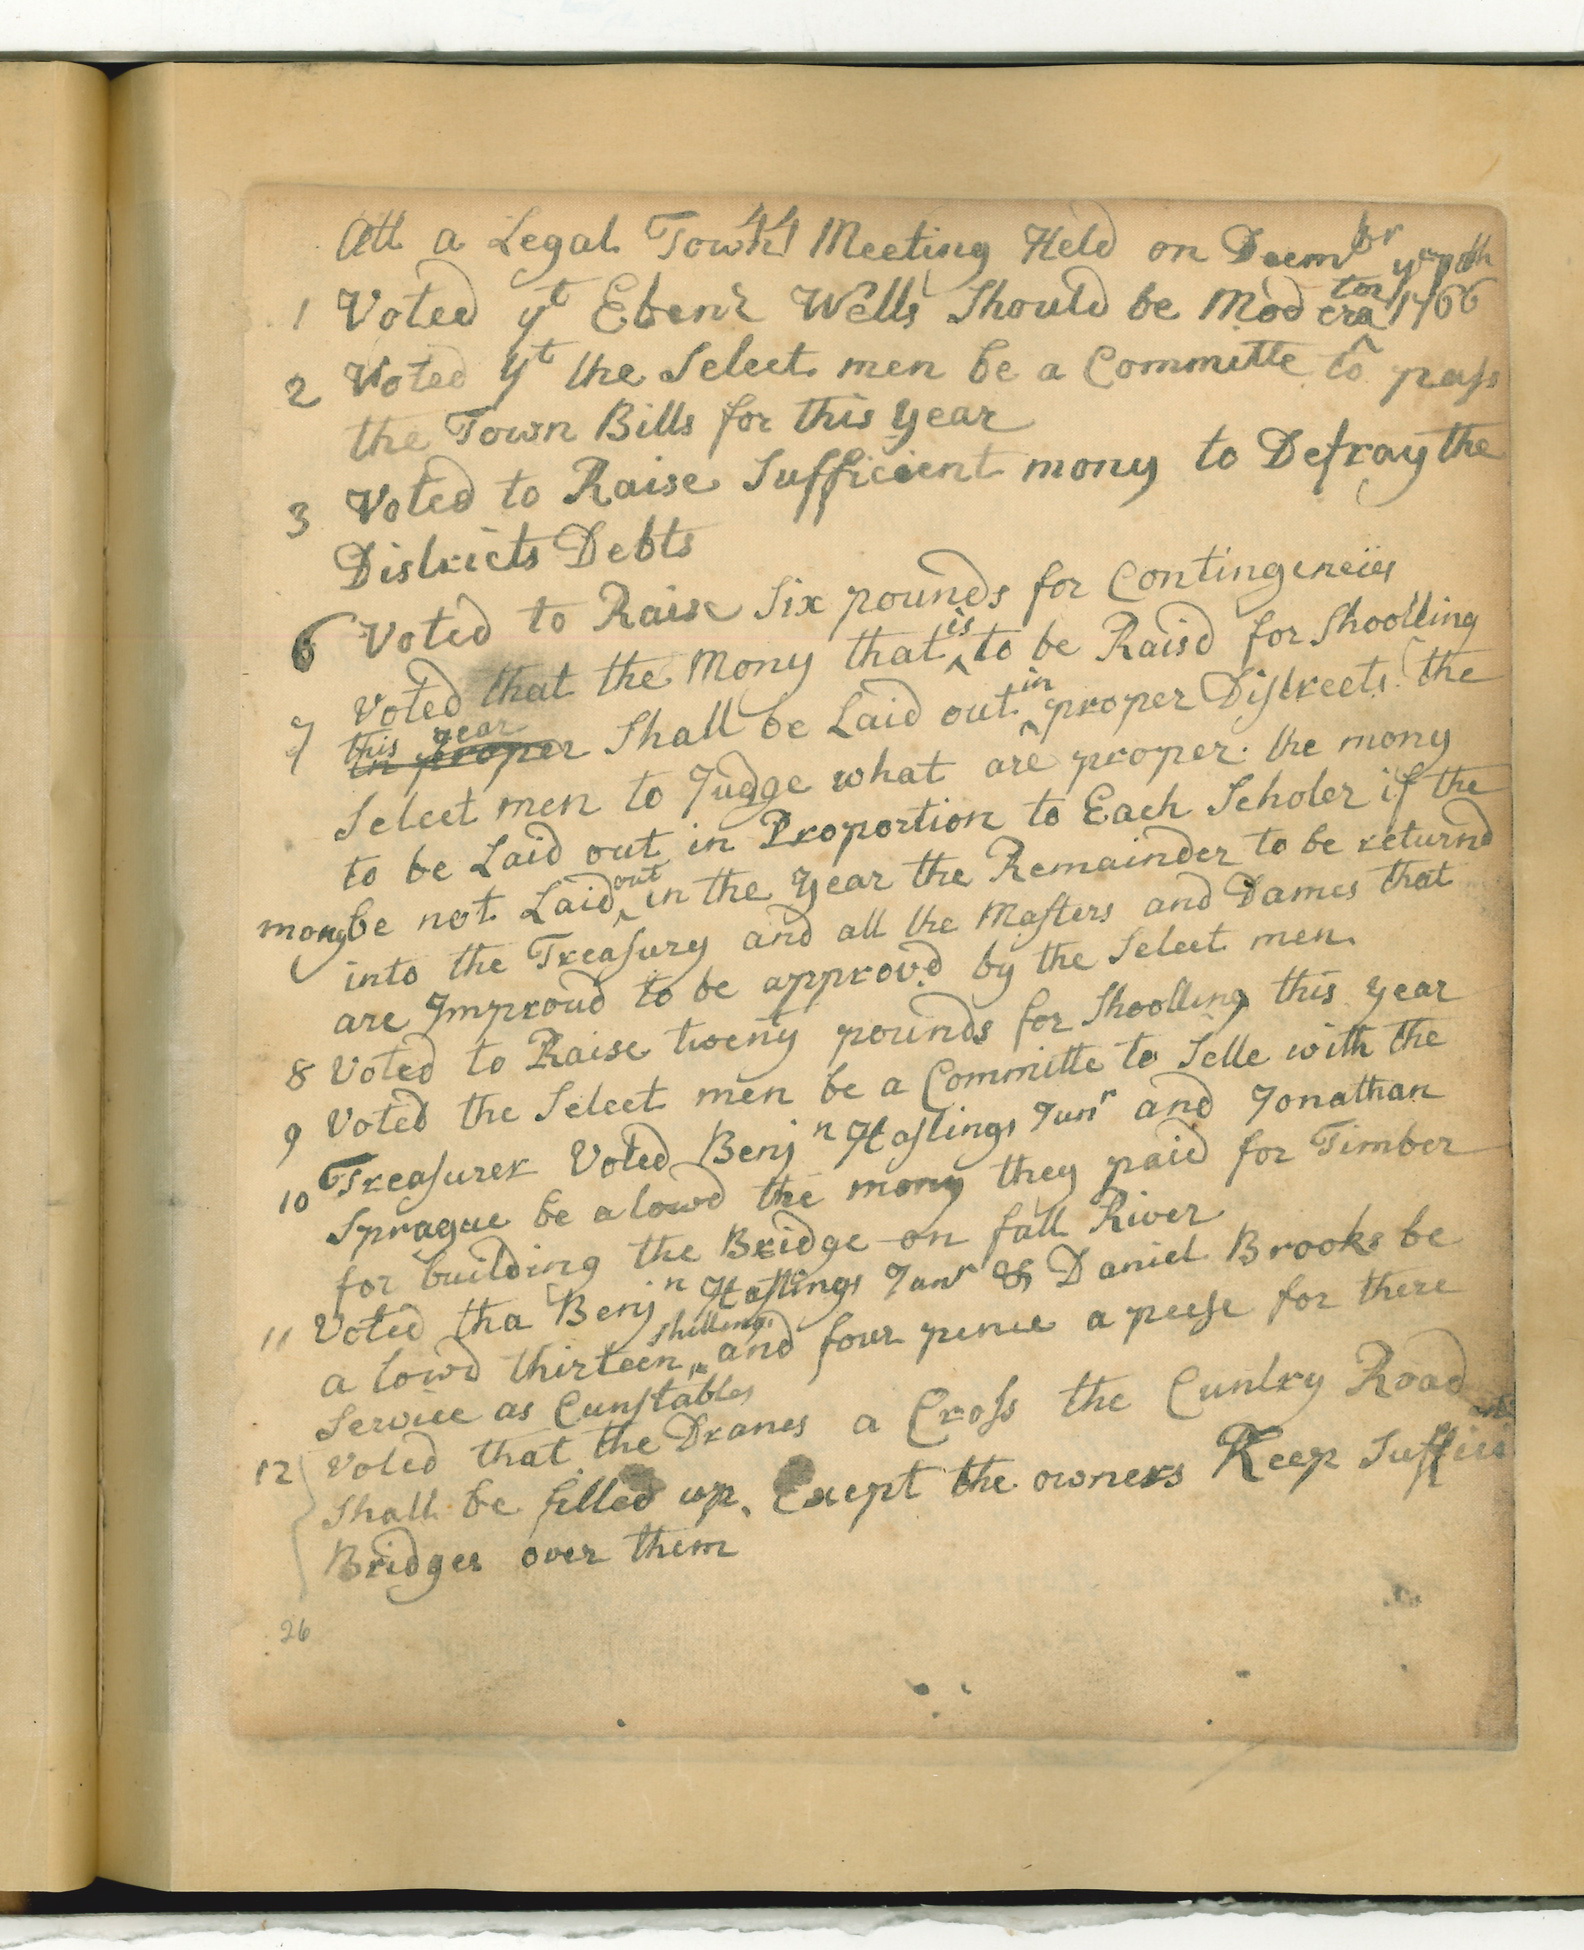 Att a Legal Town Meeting Held on Decembr ye
1 Voted yt Ebenr Wells Should be Moderator 1766
2 Voted yt the Select men be a Committe to pass
the Town Bills for this year
3 Voted to Raise Sufficient mony to Defray the
Districts Debts
6 Voted to Raise Six pounds for Contingencies
7 Voted that the Mony that is to be Raisd for Shoolling
this year in proper Shall be Laid out in proper Districts the
Select men to Judge what are proper the mony
to be Laid out in Proportion to Each Scholer if the
mony be not Laid out in the year the Remainder to be returnd
into the Treasury and all the Masters and Dames that
are Improud to be approvd by the Select men.
8 Voted to Raise twenty pounds for Shoolling this year
9 Voted the Select men be a Committe to Selle with the
Treasurer
10 Voted Benjn Hastings Junr and Jonathan
Sprague be a lowd the mony they paid for Timber
for building the Bridge on fall River
11 Voted tha Benjn Hastings Junr & Daniel Brooks be
a lowd thirteen shillings and four pence a peese for there
Service as Cunstables
12 Voted that the Dranes a Cross the Cuntry Road
Shall be filled up, Exept the owners Keep Sufficient
Bridges over them
26